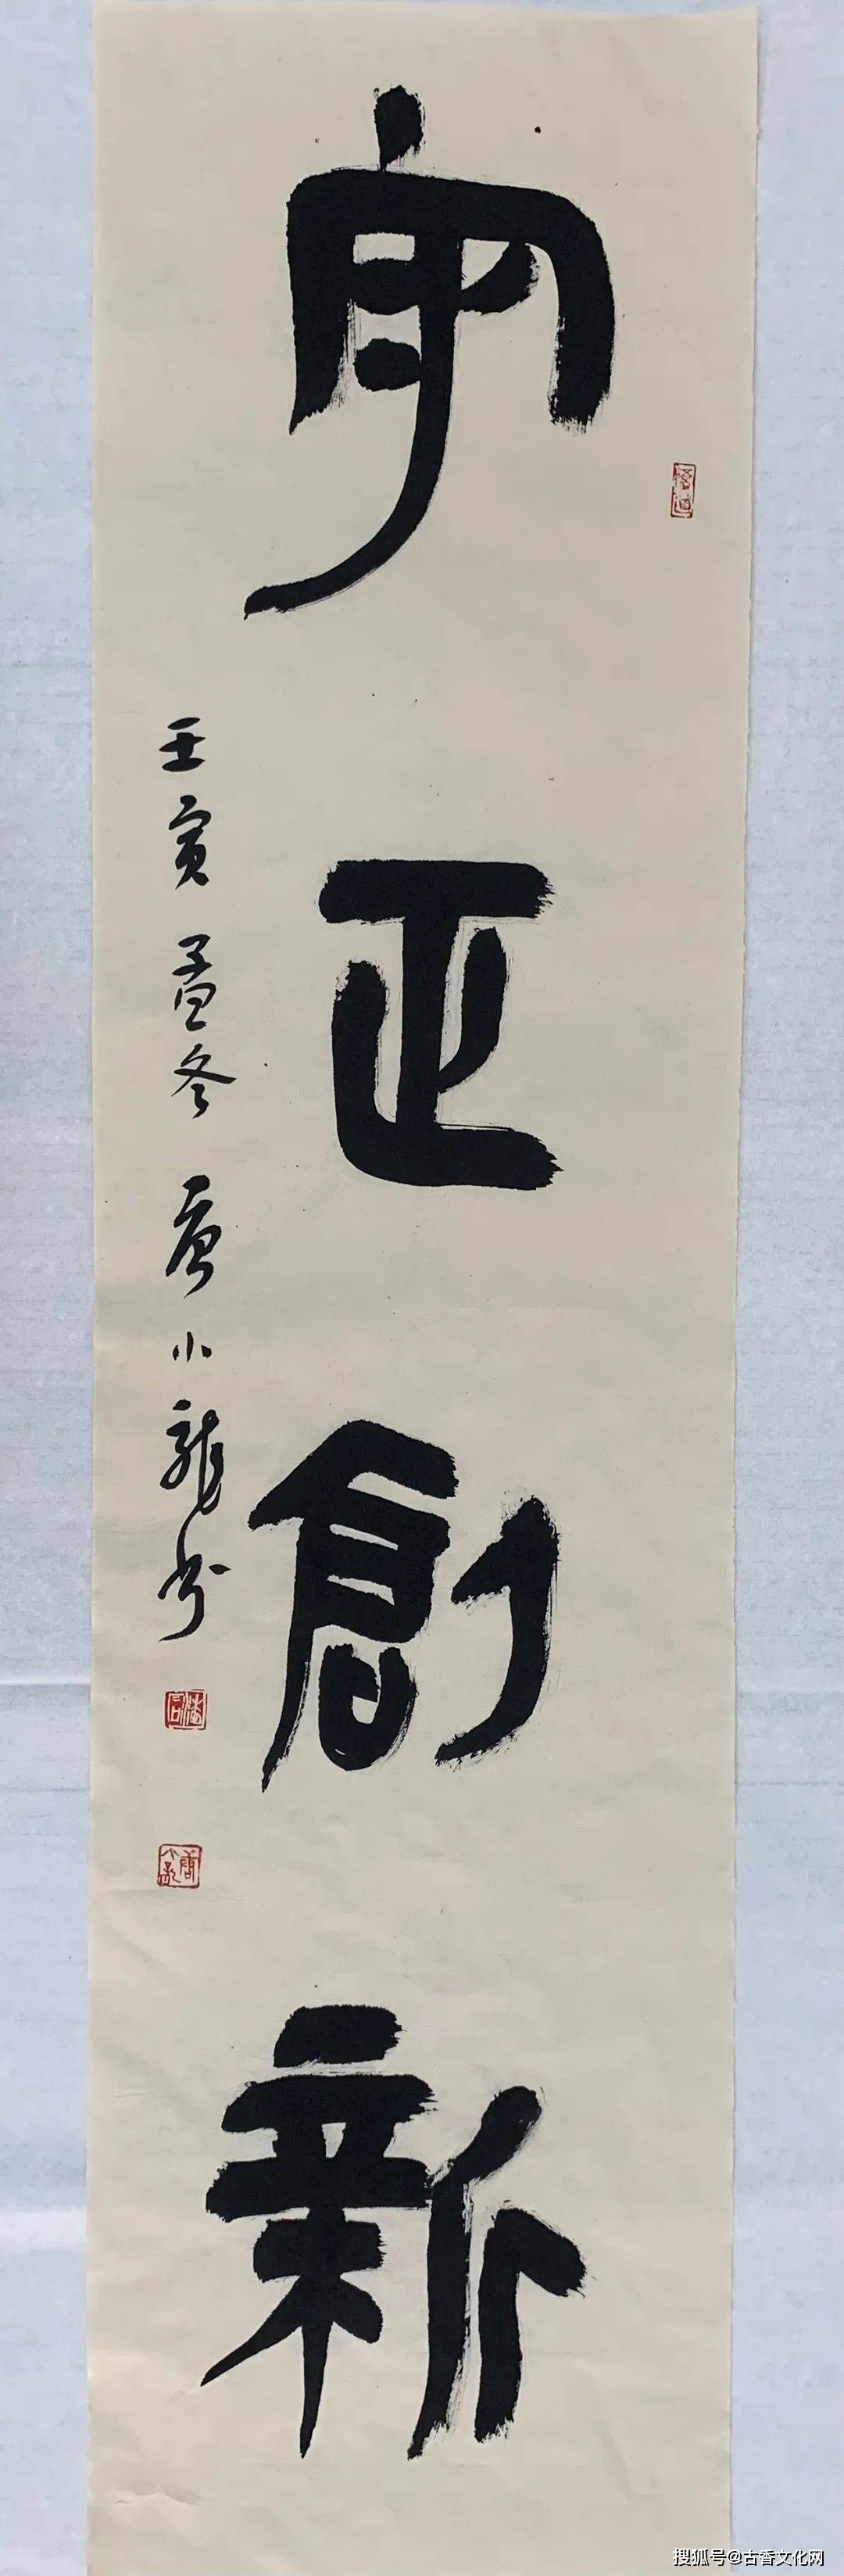 守正創新
壬寅孟冬唐小龍书
搜狐号@古香文化网